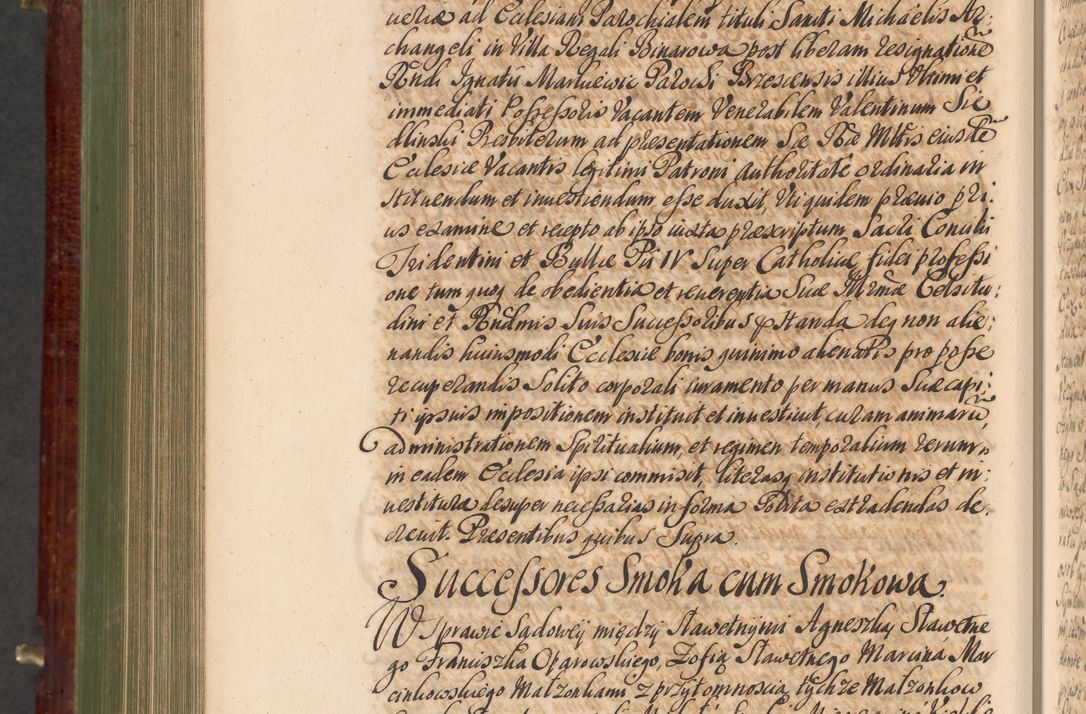 ueriæ ad Ecclesiam Parochialem tituli Sancti Michaelis Ar:
changeli in Villa Regali Binarowa post liberam resignatioñe
Rñdi Ignatii Markiewic Parochi Brzescensis illius Vltimi et
immediati Possessoris Vacantem Venerabilem Valentinum Sie
dlinski Presbiterum ad præsentationem Sæ Ræ Mttis eiusdẽ
Ecclesiæ Vacantis legitimi Patroni authoritate ordinaria in
stituendum et inuestiendum esse duxit, Vti quidem præuio pri:
us examine et recepto ab ipso iuxta præscriptum Sacri Concilii
Tridentini et Bullæ Pii IV super Catholicæ fidei professi
one tum quoq de obedientia et reuerentia Suæ Illrmæ Celsitu:
dini et Rñdmis Suis Successoribus pstanda deq non alie:
nandis huiusmodi Ecclesiæ bonis quinimo alienatis pro posse
recuperandis Solito corporali iuramento per manus Suæ capi:
ti ipsius impositionem instituit et inuestiuit, curam animarũ,
administrationem Spiritualium, et regimen temporalium rerum,
in eadem Ecclesia ipsi commisit, literasq institutionis et in:
uestituræ desuper necessarias in forma Solita extradendas de:
creuit. Præsentibus quibus Supra.
Successores Smoka cum Smokowa.
W Sprawie Sądowey między Sławetnymi Agneszką Sławetne
go Franciszka Ozarowskiego, Zofią Sławetnego Marcina Mar
cinkowskiego Małzonkami z przytomnoscią tychze Małzonkow